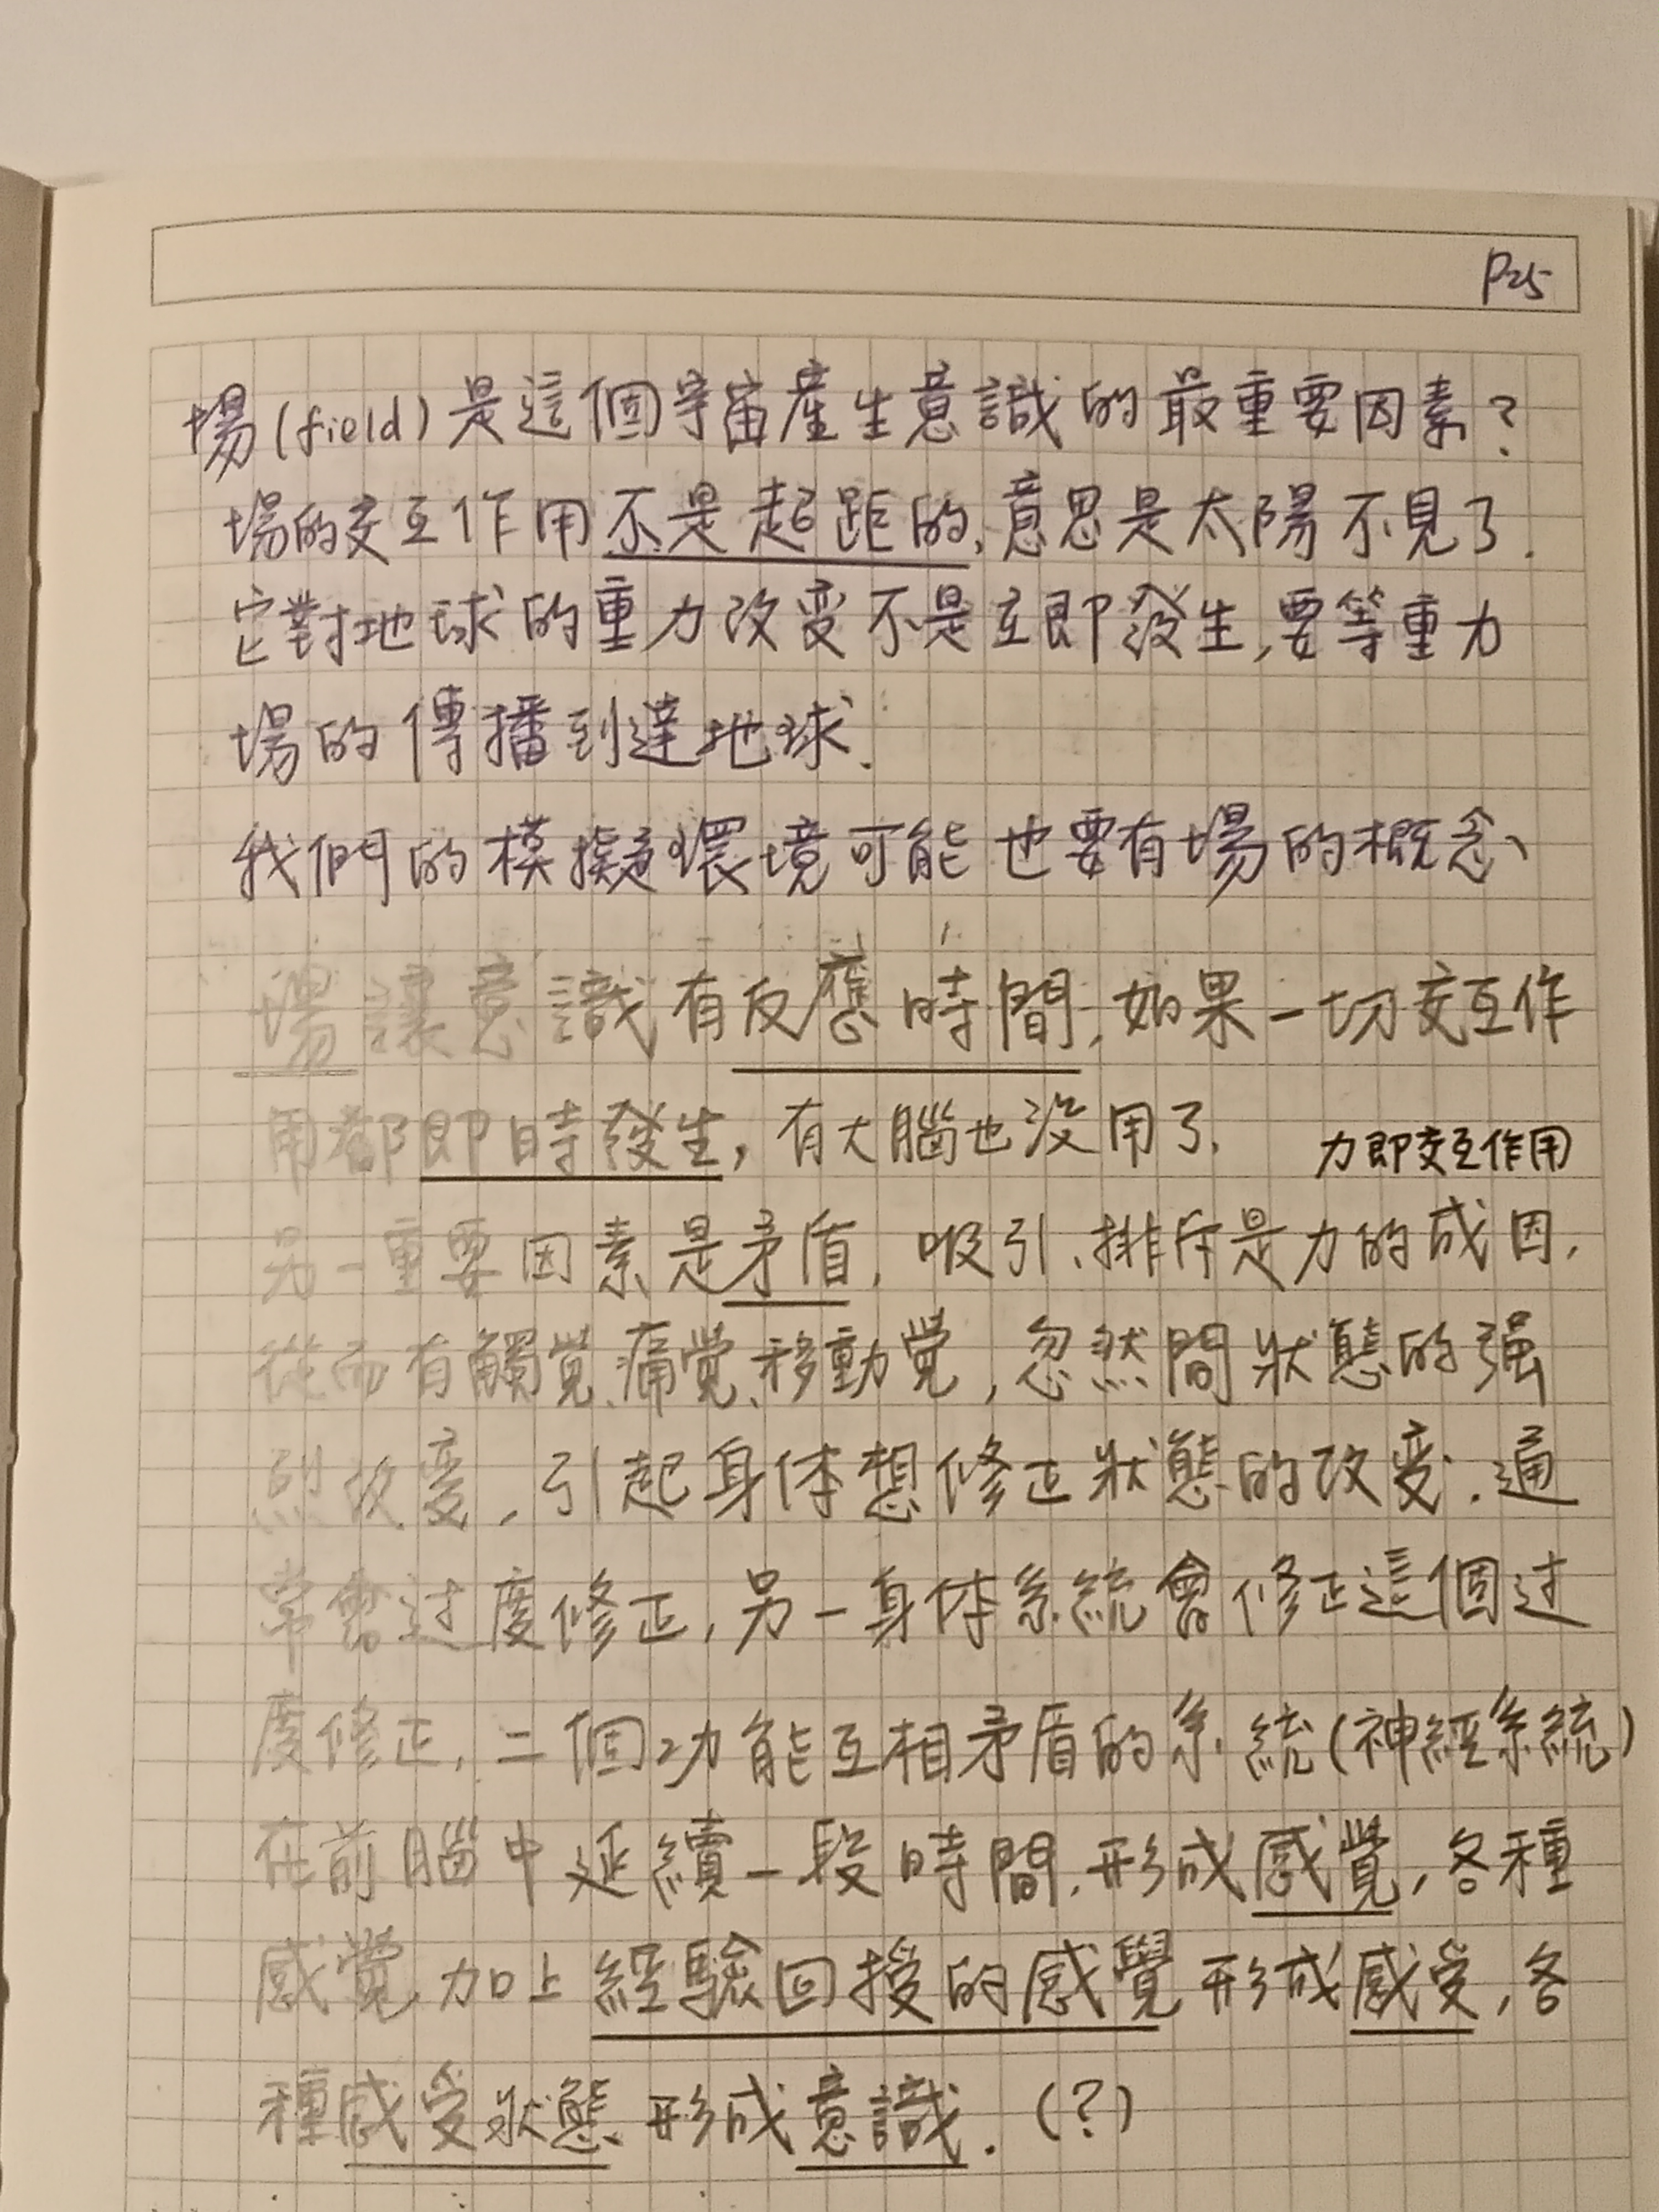 P25
場(field)是這個宇宙產生意識的最重要因素?
場的交互作用不是起距的,意思是太陽不見了.
它對地球的重力改變不是立即發生,要等重力
場的傳播到達地球.
我們的模擬環境可能也要有場的概念、
場讓意識有反應時間,如果一切交互作
用都即時發生,有大腦也沒用了.
力即交互作用
另一重要因素是矛盾,吸引、排斥是力的成因,
從而有觸覺、痛覺、移動覺,忽然間狀態的強
烈改變,引起身体想修正狀態的改變.通
常會过度修正,另一身体系統會修正這個过
度修正,二個功能互相矛盾的系統(神經系統)
在前腦中延續一段時間,形成感覺,各種
感覺加上經驗回授的感覺形成感受,各
種感受狀態形成意識.(?)